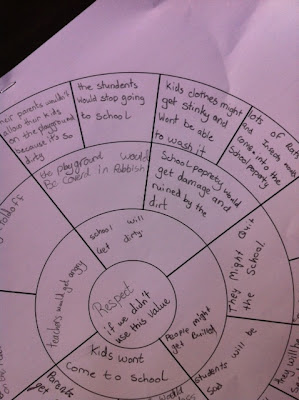 their parents wouldn't
allow their kids
on the playground
because it's so
dirty
the stundents
would stop going
to school
Kids clothes might
get stinky and
wont be able
to wash it
lots of Rats
and insects would
come into the
School property
the playground would
Be coverd in Rubbish
School poprety would
get damage and
ruined by the
dirt
school will
get dirty
Teachers would get angry
Respect
if we didn't
use this value
People might
get Bullied
They Might Quit
the School
Kids wont
come to school
students will be
Sad
they will be
Parents
get
would